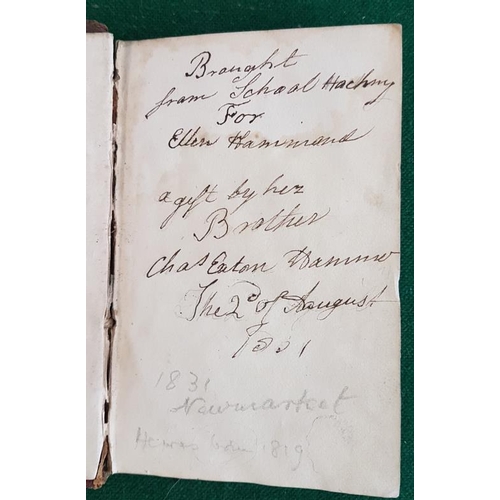 Braught
from School Hackny
For
Ellen Hammond
a gift by her
Brother
Chas Eaton Hammo
The 2d of August
1831
1831
Newmarket
He was born 1819